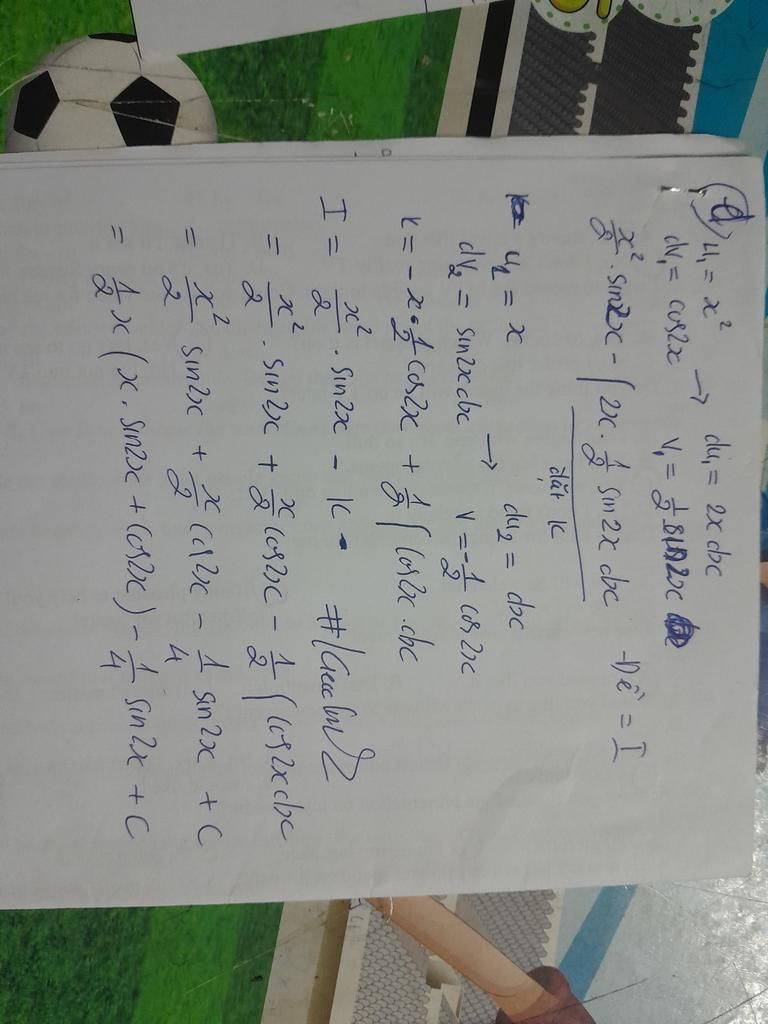 d) u₁ = x²
dv₁ = cos2x → du₁ = 2x dx
v₁ = 1/2 sin2x
x²/2 . sin2x - ∫ 2x . 1/2 sin2x dx
Đề = I
đặt K
u₂ = x
dv₂ = sin2x dx → du₂ = dx
v = -1/2 cos2x
K = -x . 1/2 cos2x + 1/2 ∫ cos2x . dx
I = x²/2 . sin2x - K
= x²/2 . sin2x + x/2 cos2x - 1/2 ∫ cos2x dx
= x²/2 sin2x + x/2 cos2x - 1/4 sin2x + C
= 1/2 x (x . sin2x + cos2x) - 1/4 sin2x + C